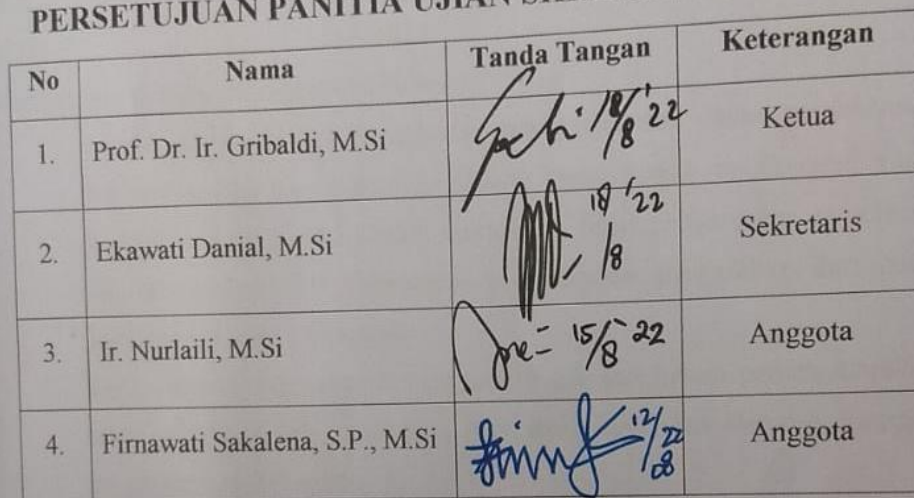 PERSETUJUAN PANITIA UJIAN
No Nama Tanda Tangan Keterangan
1. Prof. Dr. Ir. Gribaldi, M.Si 18/8 '22 Ketua
2. Ekawati Danial, M.Si 18/8 '22 Sekretaris
3. Ir. Nurlaili, M.Si 15/8 - 22 Anggota
4. Firnawati Sakalena, S.P., M.Si 12/08 22 Anggota